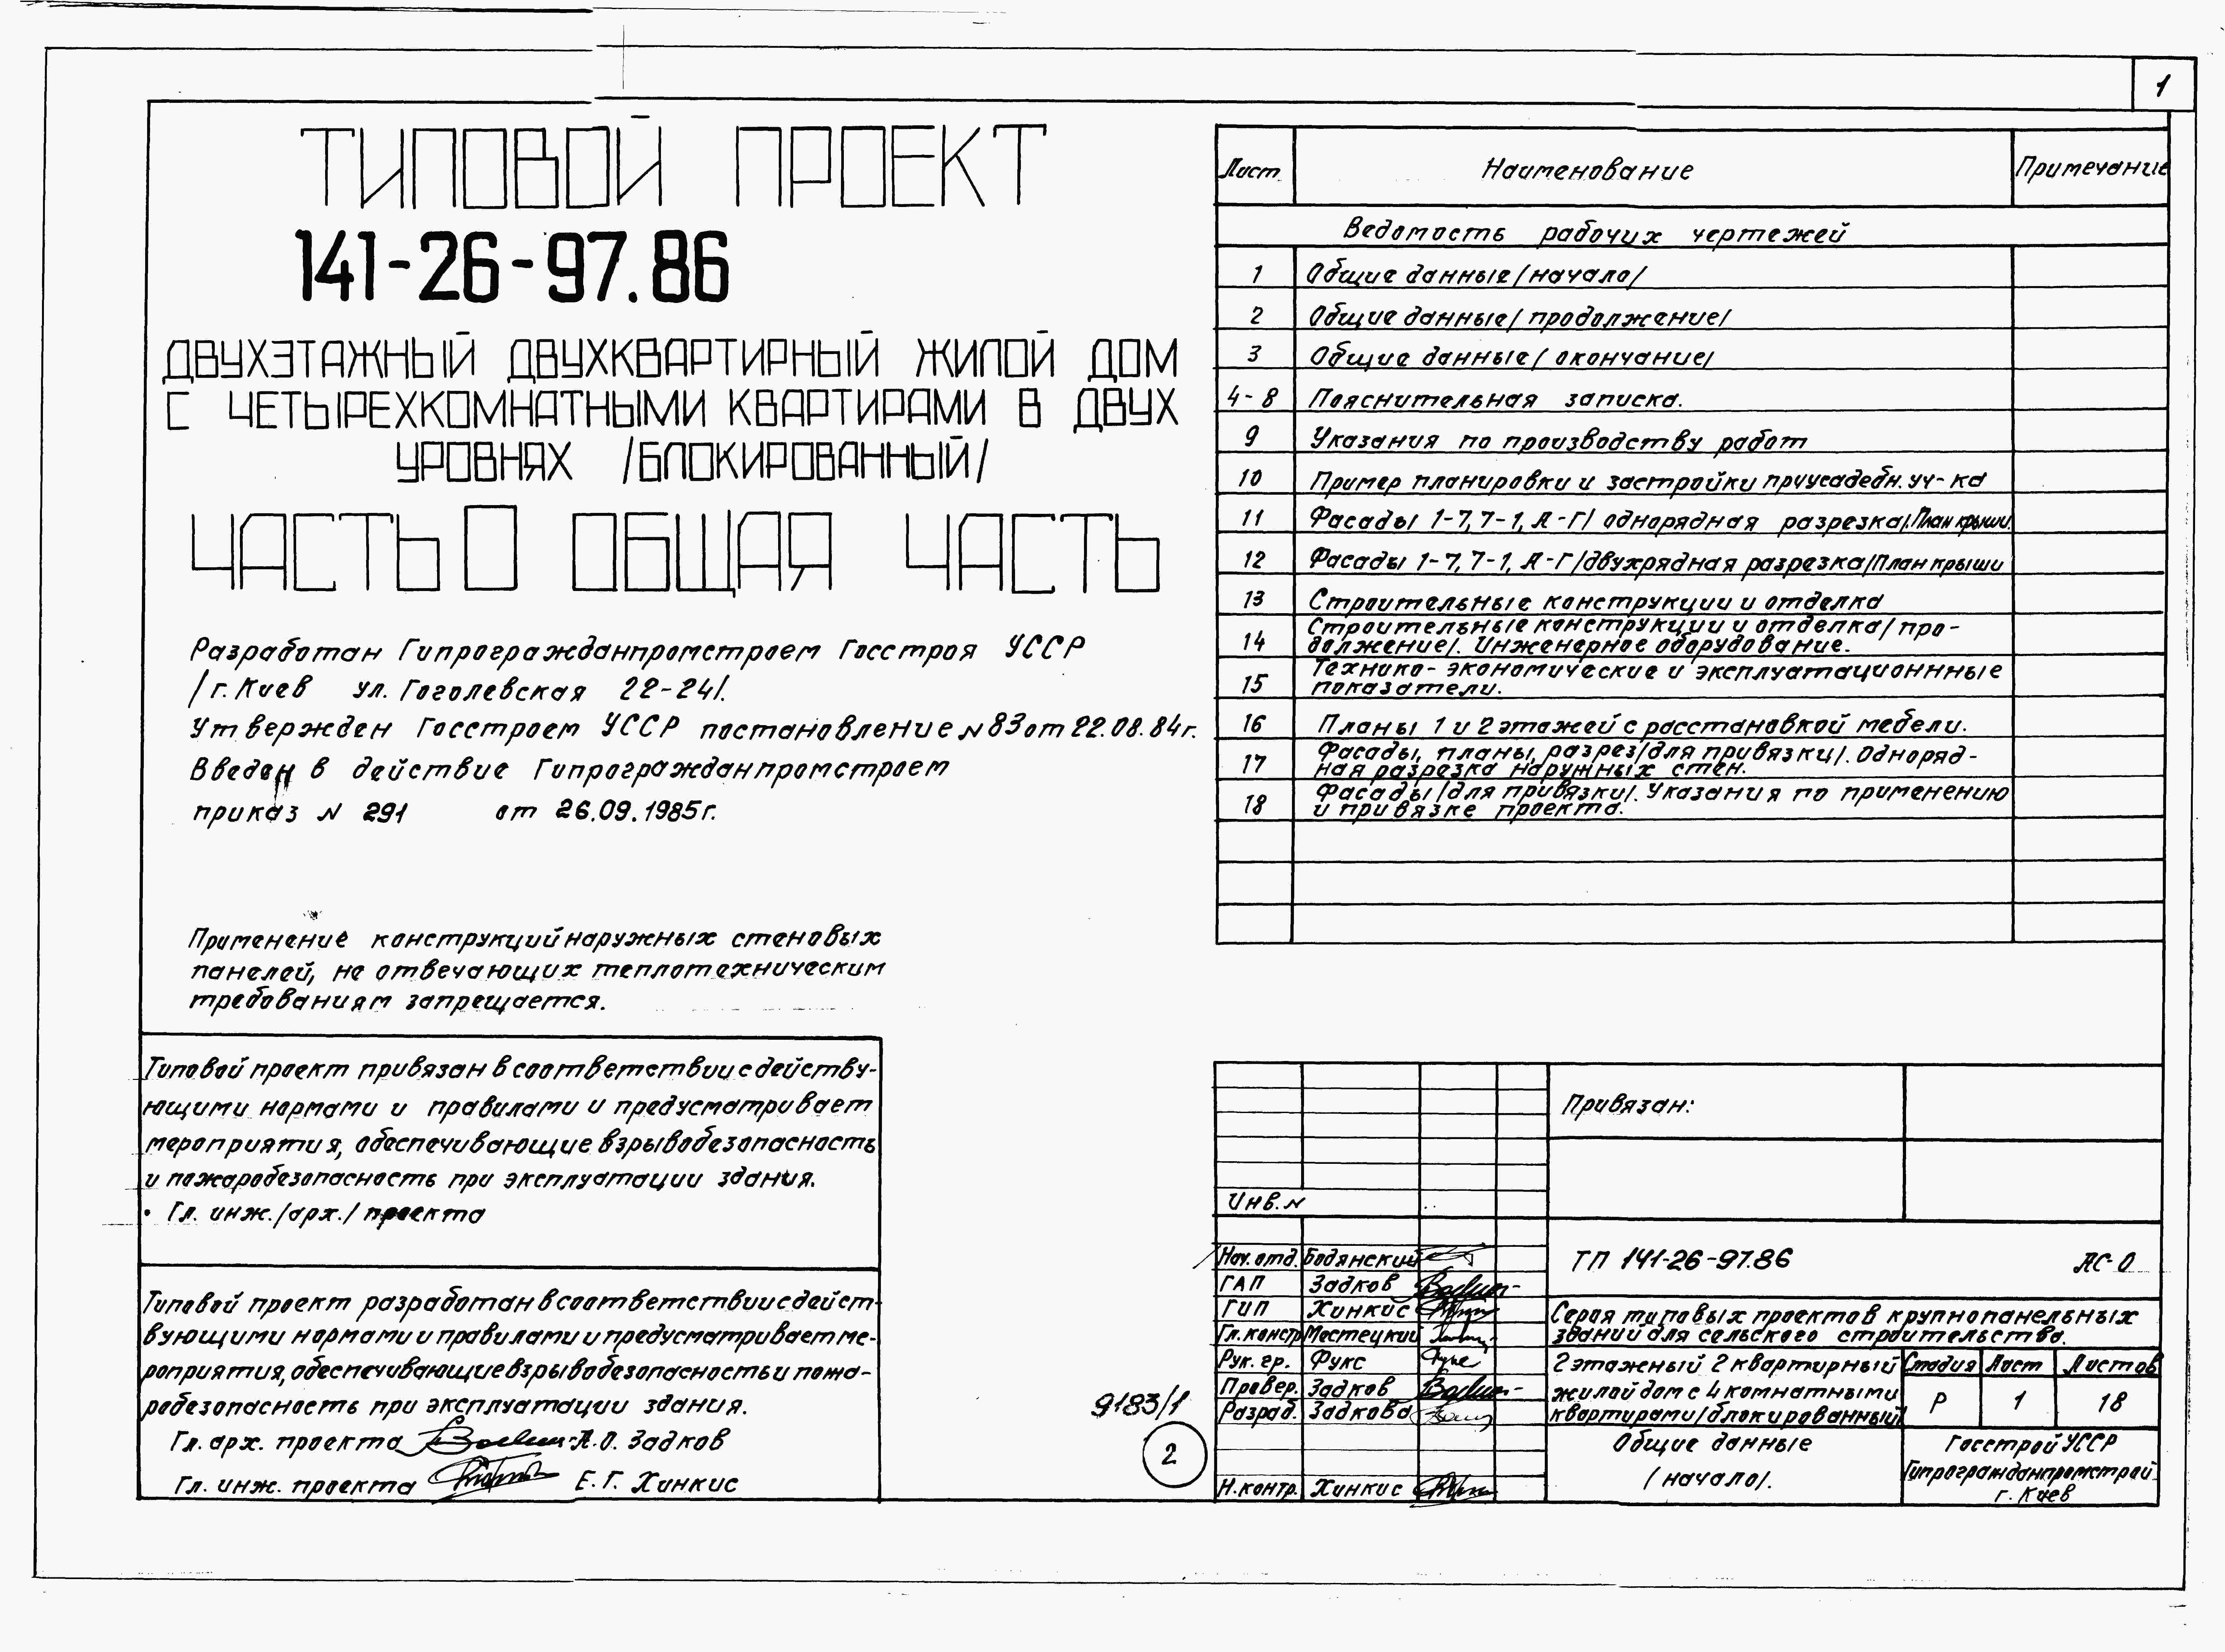 1
ТИПОВОЙ ПРОЕКТ
141-26-97.86
ДВУХЭТАЖНЫЙ ДВУХКВАРТИРНЫЙ ЖИЛОЙ ДОМ
С ЧЕТЫРЕХКОМНАТНЫМИ КВАРТИРАМИ В ДВУХ
УРОВНЯХ /БЛОКИРОВАННЫЙ/
ЧАСТЬ 0 ОБЩАЯ ЧАСТЬ
Разработан Гипрогражданпромстроем Госстроя УССР
/г. Киев ул. Гоголевская 22-24/.
Утвержден Госстроем УССР постановление N 83 от 22.08.84г.
Введен в действие Гипрогражданпромстроем
приказ N 291 от 26.09.1985г.
Применение конструкций наружных стеновых
панелей, не отвечающих теплотехническим
требованиям запрещается.
Типовой проект привязан в соответствии с действу-
ющими нормами и правилами и предусматривает
мероприятия, обеспечивающие взрывобезопасность
и пожаробезопасность при эксплуатации здания.
Гл. инж./арх./ проекта
Типовой проект разработан в соответствии с дейст-
вующими нормами и правилами и предусматривает ме-
роприятия, обеспечивающие взрывобезопасность и пожа-
робезопасность при эксплуатации здания.
Гл. арх. проекта А.О. Задков
Гл. инж. проекта Е.Г. Хинкис
Лист Наименование Примечание
Ведомость рабочих чертежей
1 Общие данные /начало/
2 Общие данные /продолжение/
3 Общие данные /окончание/
4-8 Пояснительная записка.
9 Указания по производству работ
10 Пример планировки и застройки приусадебн. уч-ка
11 Фасады 1-7, 7-1, А-Г/ однорядная разрезка/. План крыши.
12 Фасады 1-7, 7-1, А-Г/двухрядная разрезка/План крыши
13 Строительные конструкции и отделка
14 Строительные конструкции и отделка/про-
должение/. Инженерное оборудование.
15 Технико-экономические и эксплуатационнные
показатели.
16 Планы 1 и 2 этажей с расстановкой мебели.
17 Фасады, планы, разрез/для привязки/. Одноряд-
ная разрезка наружных стен.
18 Фасады/для привязки/. Указания по применению
и привязке проекта.
Привязан:
Инв. N
Нач. отд. Бодянский
ГАП Задков
ГИП Хинкис
Гл. констр. Мостецкий
Рук. гр. Фукс
Провер. Задков
Разраб. Задкова
Н. контр. Хинкис
ТП 141-26-97.86 АС-0
Серия типовых проектов крупнопанельных
зданий для сельского строительства.
2 этажный 2 квартирный
жилой дом с 4 комнатными
квартирами/блокированный/
Стадия Лист Листов
Р 1 18
Общие данные
/начало/.
Госстрой УССР
Гипрогражданпромстрой
г. Киев
9183/1
2